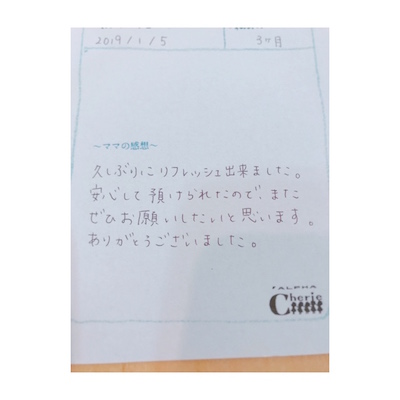 2019/1/5
3ヶ月
～ママの感想～
久しぶりにリフレッシュ出来ました。
安心して預けられたので、また
ぜひお願いしたいと思います。
ありがとうございました。
ALPHA
Cherie